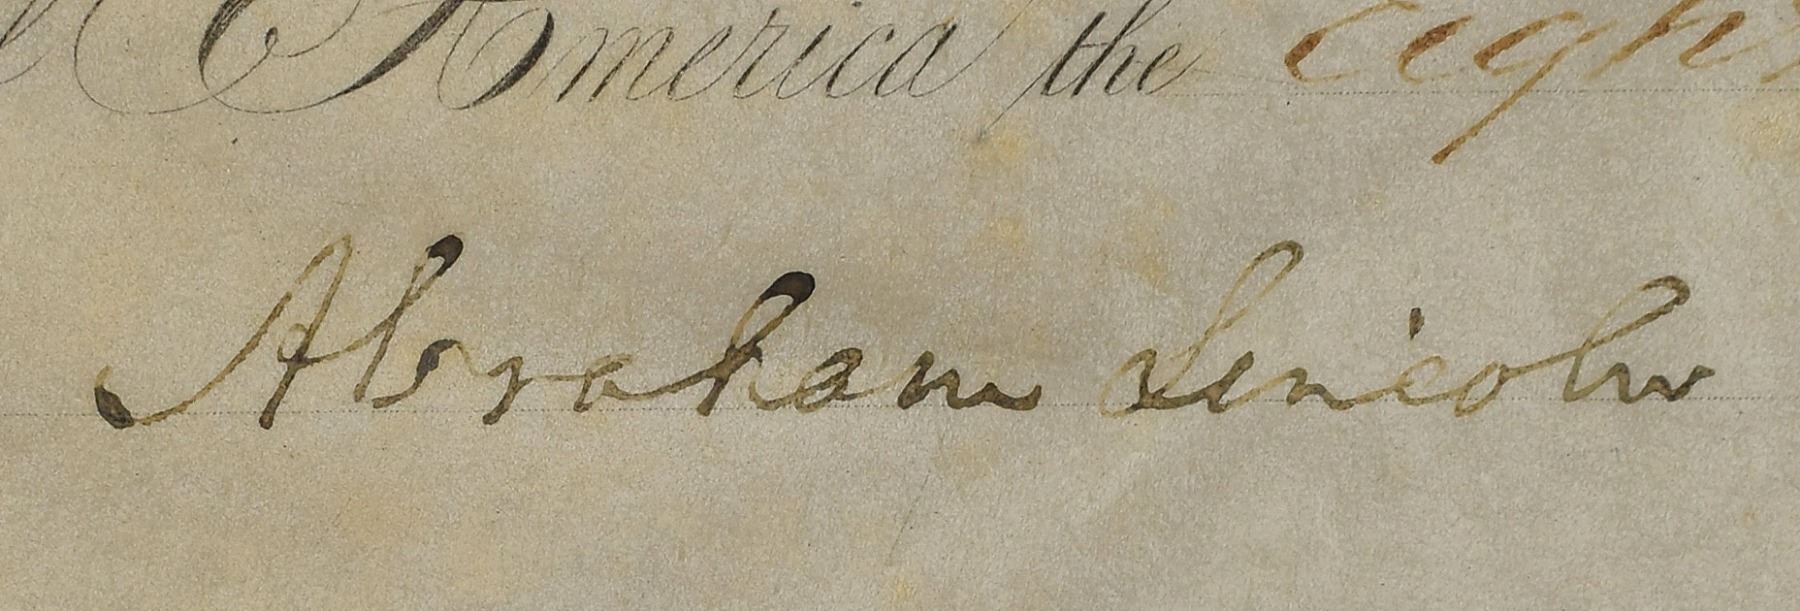 America the eigh
Abraham Lincoln